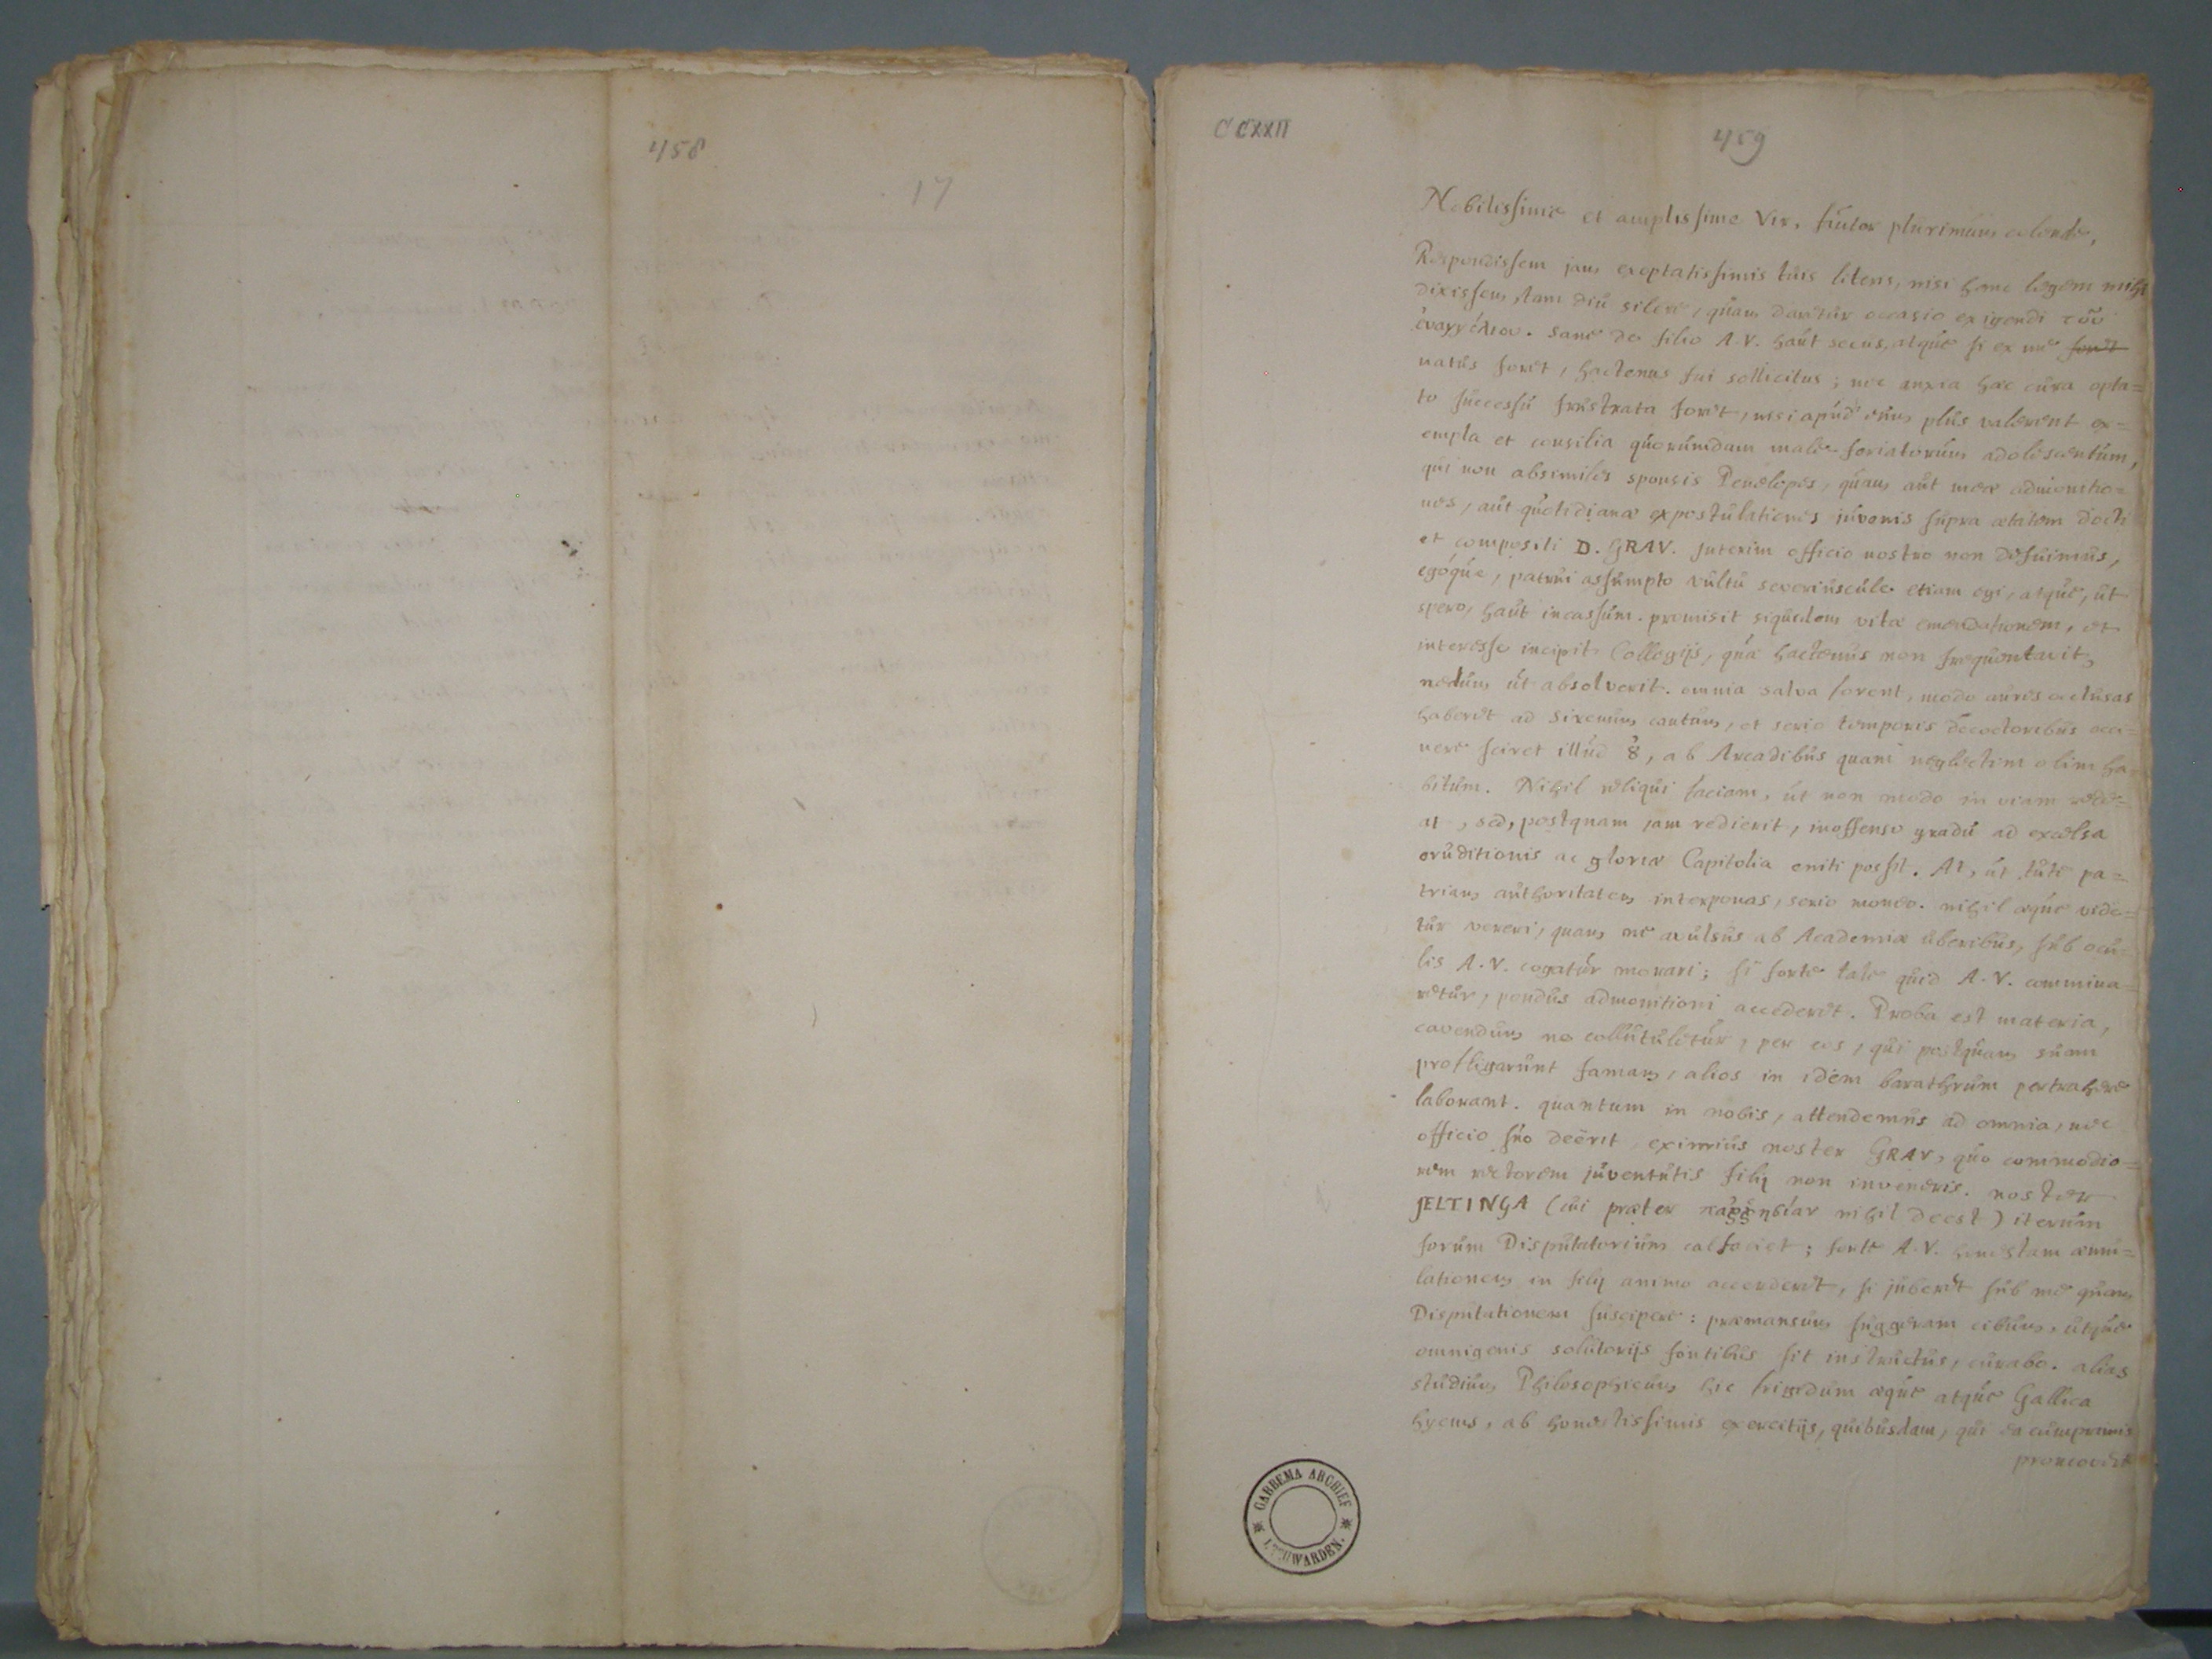 458
17
CCXXII
459
Nobilissime et amplissime Vir, fautor plurimum colende,
Respondissem jam exoptatissimis tuis literis, nisi hanc legem mihi
dixissem, tam diu silere, quam daretur occasio exigendi τοῦ
ἐυαγγέλιου. Sane de filio A.V. haut secus, atque si ex me foret
natus foret, hactenus fui sollicitus; nec anxia haec cura opta=
to successu frustrata foret, nisi apud eum plus valerent ex=
empla et consilia quorumdam male-feriatorum adolescentum,
qui non absimiles sponsis Penelopes, quam aut meae admonitio=
nes, aut quotidianae expostulationes juvenis supra aetatem docti
et compositi D. GRAV. Interim officio nostro non defuimus,
egoque, patrui assumpto vultu severiuscule etiam egi, atque, ut
spero, haut incassum. promisit siquidem vitae emendationem, et
interesse incipit Collegijs, quae hactenus non frequentavit,
nedum ut absolverit. omnia salva forent, modo aures occlusas
haberet ad Sirenum cantum, et serio temporis decoctoribus occi=
nere sciret illud 8, ab Arcadibus quam neglectim olim ha=
bitum. Nihil reliqui faciam, ut non modo in viam rede=
at, sed, postquam jam redierit, inoffenso gradu ad excelsa
eruditionis ac gloriae Capitolia eniti possit. At, ut tute pa=
triam authoritatem interponas, serio moneo. nihil aeque vide=
tur vereri, quam ne avulsus ab Academiae uberibus, sub ocu=
lis A.V. cogatur morari; si forte tale quid A.V. commina=
retur, pondus admonitioni accederet. Proba est materia,
cavendum ne collutuletur, per eos, qui postquam suam
profligarunt famam, alios in idem barathrum pertrahere
laborant. quantum in nobis, attendemus ad omnia, nec
officio suo deërit eximius noster GRAV, quo commodio=
rem rectorem juventutis filij non inveneris. noster
JELTINGA (cui praeter nihil deest) iterum
forum Disputatorium calfaciet; forte A.V. honestam aemu=
lationem in filij animo accenderet, si juberet sub me quam
Disputationem suscipere: praemansum suggeram cibum, utque
omnigenis solutorijs fontibus sit instructus, curabo. alias
studium Philosophicum hic frigidum aeque atque Gallica
hyems, ab honestissimis exercitijs, quibusdam, qui ea cumprimis
GABBEMA ARCHIEF
LEEUWARDEN.